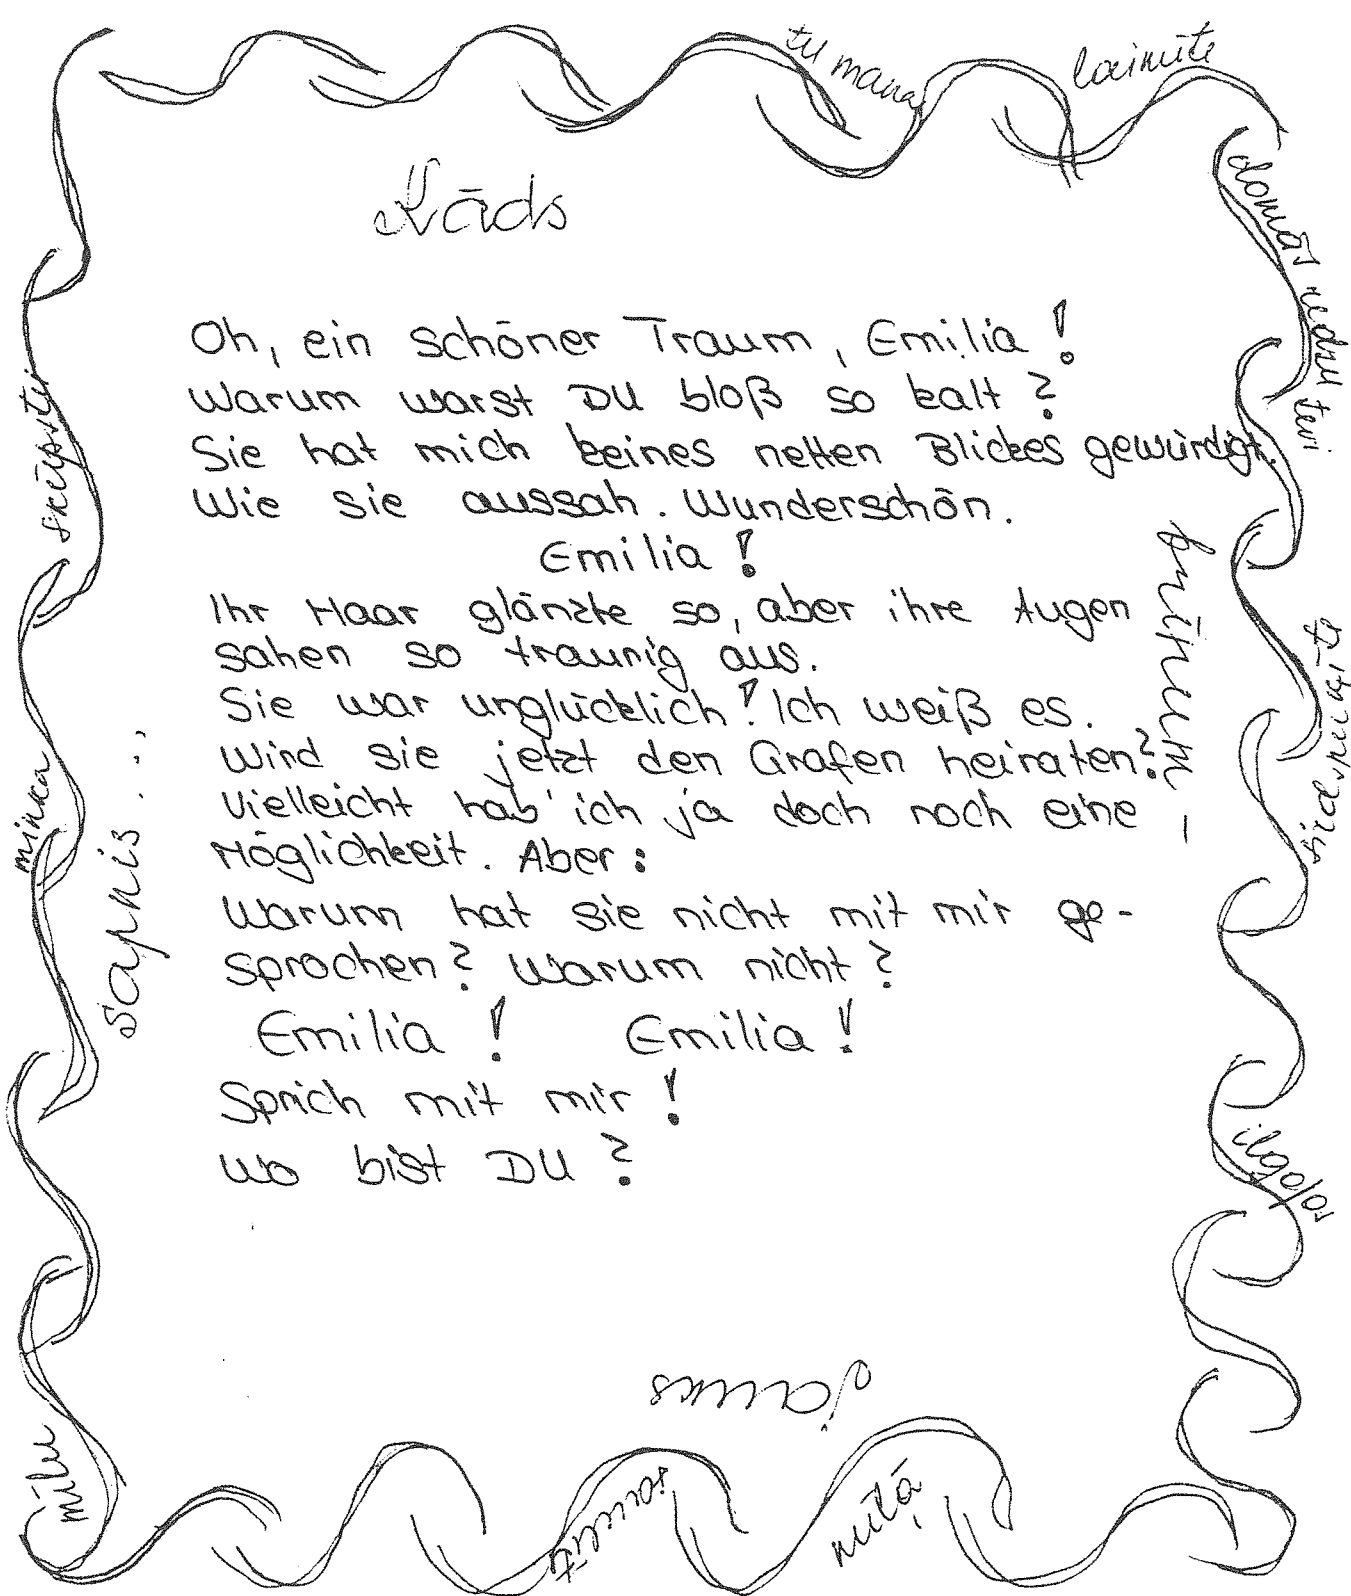 tu mana
laimīte
Kāds
domās redzu tevi
Oh, ein schöner Traum, Emilia!
Warum warst DU bloß so kalt?
Sie hat mich keines netten Blickes gewürdigt.
Wie sie aussah. Wunderschön.
Emilia!
Ihr Haar glänzte so, aber ihre Augen
sahen so traurig aus.
Sie war unglücklich! Ich weiß es.
Wird sie jetzt den Grafen heiraten?
Vielleicht hab' ich ja doch noch eine
Möglichkeit. Aber:
Warum hat sie nicht mit mir ge-
sprochen? Warum nicht?
Emilia! Emilia!
Sprich mit mir!
Wo bist DU?
brīnum -
ilgojos
jauks
mīļā
sapnis...
skūpsti
mīlu